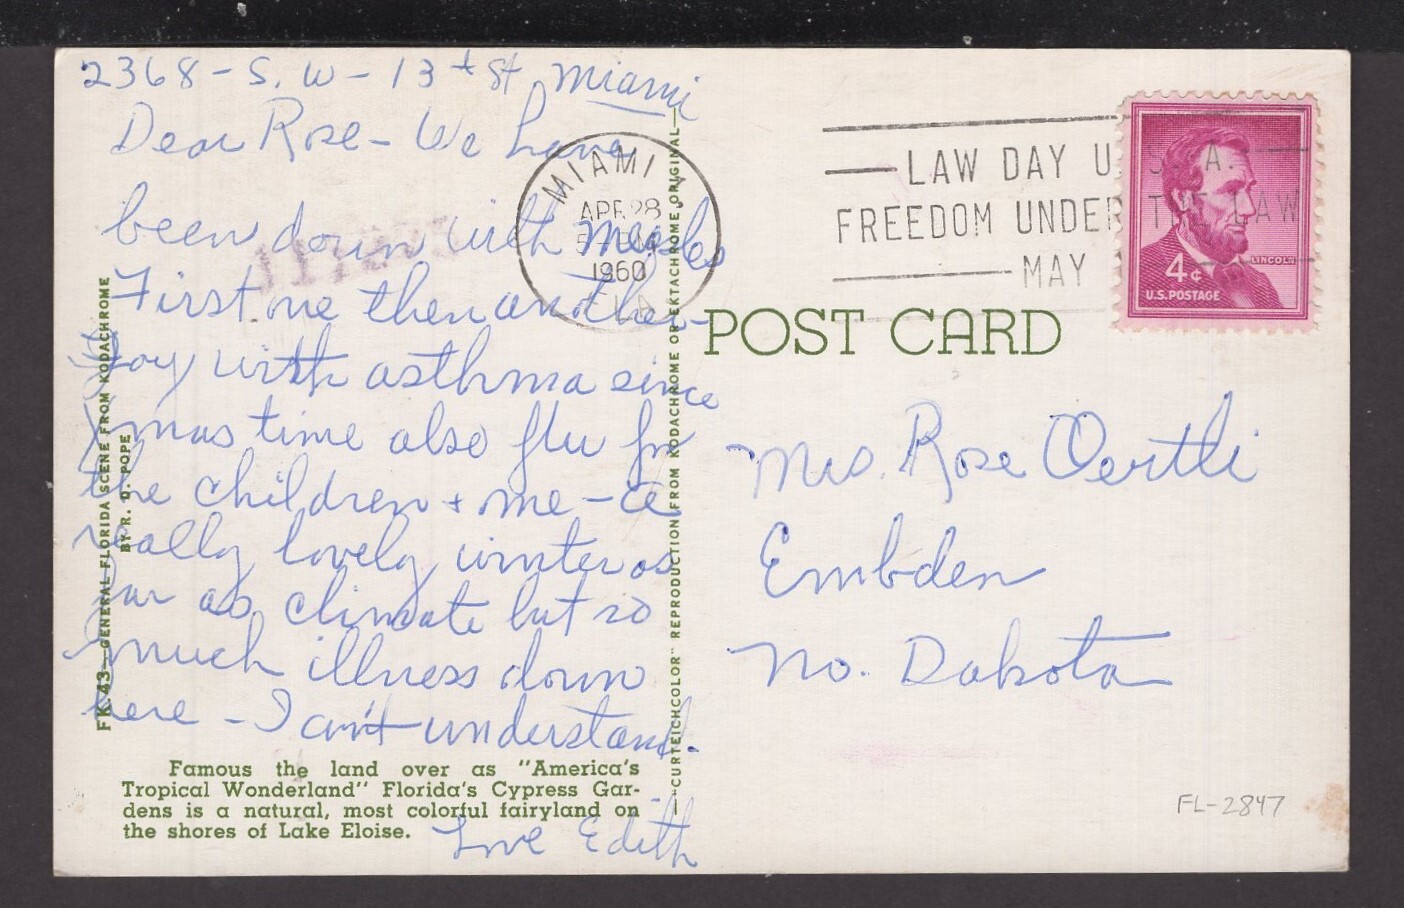 2368 - S. W - 13th St Miami
Dear Rose - We have
been down with measles
First one then another -
Joy with asthma since
Xmas time also flu for
the children + me - a
really lovely winter as
far as climate but so
much illness down
here - I can't understand.
Love Edith
Famous the land over as "America's
Tropical Wonderland" Florida's Cypress Gar-
dens is a natural, most colorful fairyland on
the shores of Lake Eloise.
FK-43—GENERAL FLORIDA SCENE FROM KODACHROME
BY R. D. POPE
—"CURTEICHCOLOR" REPRODUCTION FROM KODACHROME OR EKTACHROME ORIGINAL—
MIAMI
APR 28
PM
1960
FLA
LAW DAY U.S.A.
FREEDOM UNDER THE LAW
MAY
LINCOLN
4¢
U.S. POSTAGE
POST CARD
Mrs. Rose Oertli
Embden
No. Dakota
FL-2847